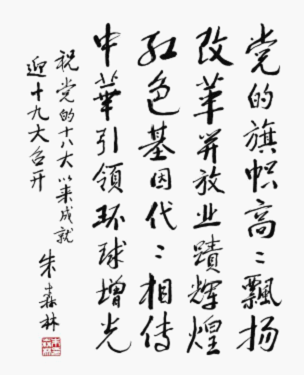 党的旗帜高〻飘扬
改革开放业蹟辉煌
红色基因代〻相传
中華引領环球增光
祝党的十八大以来成就
迎十九大召开
朱森林